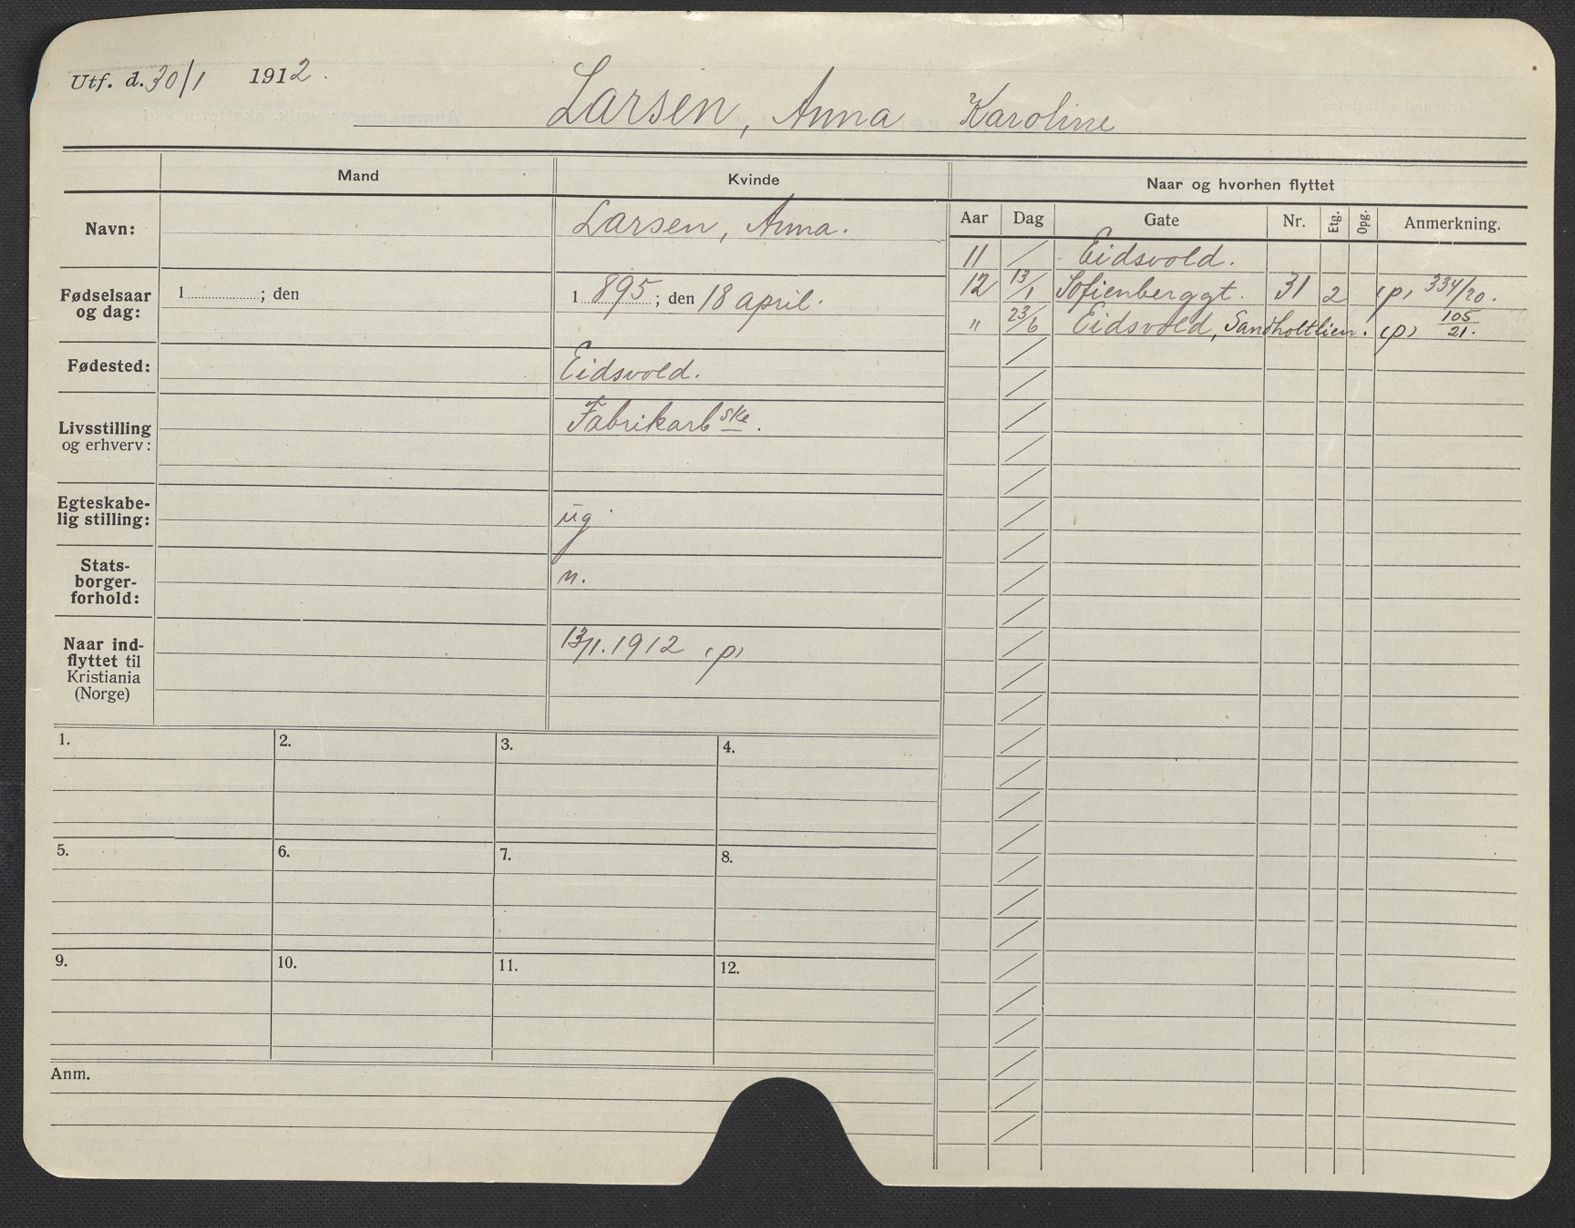 Utf. d. 30/1 1912.
Larsen, Anna Karoline
Mand
Kvinde
Naar og hvorhen flyttet
Aar Dag Gate Nr. Etg. Opg. Anmerkning.
Navn:
Larsen, Anna.
Fødselsaar og dag:
1 ; den
1 895 ; den 18 april.
Fødested:
Eidsvold.
Livsstilling og erhverv:
Fabrikarbske.
Egteskabe-
lig stilling:
ug.
Stats-
borger-
forhold:
n.
Naar ind-
flyttet til
Kristiania
(Norge)
13/1. 1912 (p)
11 / Eidsvold.
12 13/1 Sofienberggt. 31 2 (p) 334/20.
" 23/6 Eidsvold, Sandholtlien. (p) 105/21.
1. 2. 3. 4.
5. 6. 7. 8.
9. 10. 11. 12.
Anm.